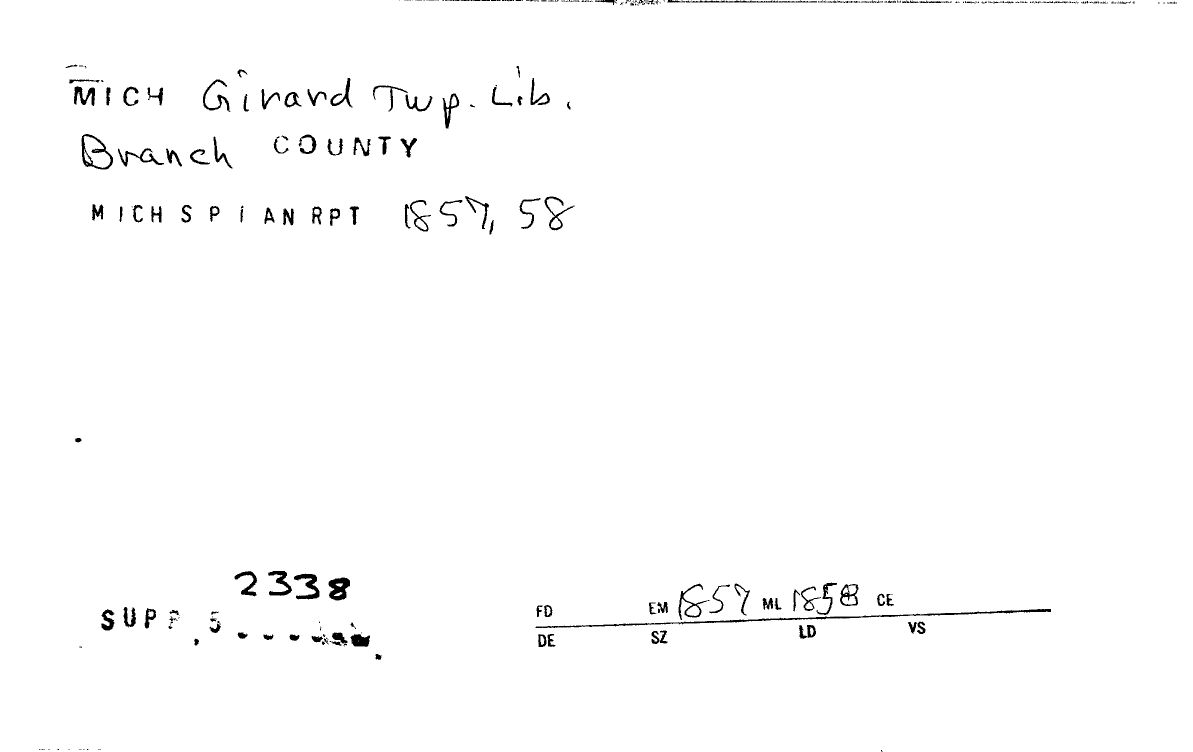 MICH Girard Twp. Lib.
Branch COUNTY
MICH S P I AN RPT 1857, 58
2338
SUPP. 5
FD EM 1857 ML 1858 CE
DE SZ LD VS